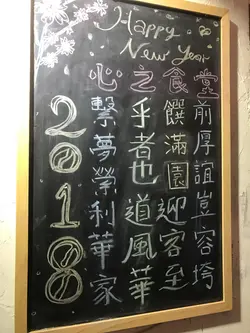 Happy
New Year
堂前厚誼豈容垮
食饌滿園迎客至
之乎者也道風華
心繫夢縈利華家
2018